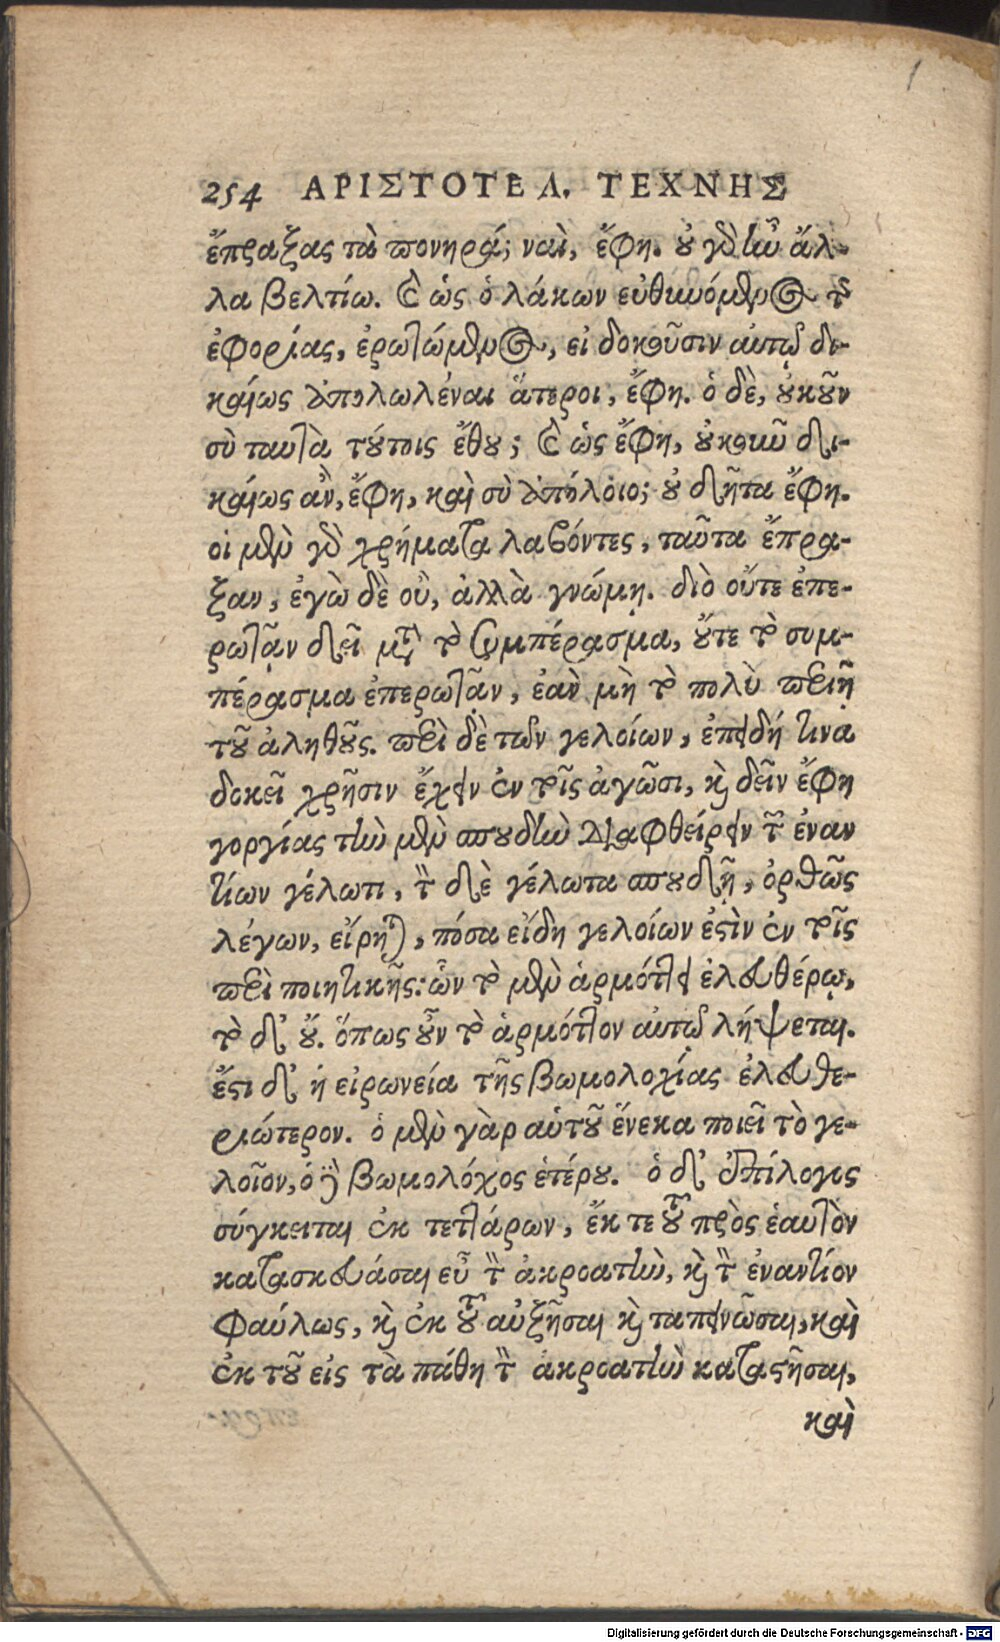 1
254 ΑΡΙΣΤΟΤΕΛ. ΤΕΧΝΗΣ
ἔπραξας τὰ πονηρά; ναὶ, ἔφη. οὐ γὰρ ἦν ἄλ-
λα βελτίω. καὶ ὡς ὁ λάκων εὐθυνόμενος τῆς
ἐφορίας, ἐρωτώμενος, εἰ δοκοῦσιν αὐτῷ δι-
καίως ἀπολωλέναι ἅτεροι, ἔφη. ὁ δὲ, οὐκοῦν
σὺ ταυτὰ τούτοις ἔθου; καὶ ὡς ἔφη, οὐκοῦν δι-
καίως ἂν, ἔφη, καὶ σὺ ἀπόλοιο; οὐ δῆτα ἔφη.
οἱ μὲν γὰρ χρήματα λαβόντες, ταῦτα ἔπρα-
ξαν, ἐγὼ δὲ οὒ, ἀλλὰ γνώμῃ. διὸ οὔτε ἐπε-
ρωτᾷν δεῖ μετὰ τὸ συμπέρασμα, οὔτε τὸ συμ-
πέρασμα ἐπερωτᾷν, ἐὰν μὴ τὸ πολὺ περιῇ
τοῦ ἀληθοῦς. περὶ δὲ τῶν γελοίων, ἐπειδή τινα
δοκεῖ χρῆσιν ἔχειν ἐν τοῖς ἀγῶσι, καὶ δεῖν ἔφη
γοργίας τὴν μὲν σπουδὴν διαφθείρειν τῶν ἐναν
τίων γέλωτι, τὸν δὲ γέλωτα σπουδῇ, ὀρθῶς
λέγων, εἴρηται, πόσα εἴδη γελοίων ἐστὶν ἐν τοῖς
περὶ ποιητικῆς: ὧν τὸ μὲν ἁρμόττει ἐλευθέρῳ,
τὸ δ' οὔ. ὅπως οὖν τὸ ἁρμόττον αὐτῷ λήψεται.
ἔστι δ' ἡ εἰρωνεία τῆς βωμολοχίας ἐλευθε-
ριώτερον. ὁ μὲν γὰρ αὑτοῦ ἕνεκα ποιεῖ τὸ γε-
λοῖον, ὁ δὲ βωμολόχος ἑτέρου. ὁ δ' ἐπίλογος
σύγκειται ἐκ τεττάρων, ἔκ τε τοῦ πρὸς ἑαυτὸν
κατασκευάσαι εὖ τὸν ἀκροατὴν, καὶ τὸν ἐναντίον
φαύλως, καὶ ἐκ τοῦ αὐξῆσαι καὶ ταπεινῶσαι, καὶ
ἐκ τοῦ εἰς τὰ πάθη τὸν ἀκροατὴν καταστῆσαι,
καὶ
Digitalisierung gefördert durch die Deutsche Forschungsgemeinschaft - DFG